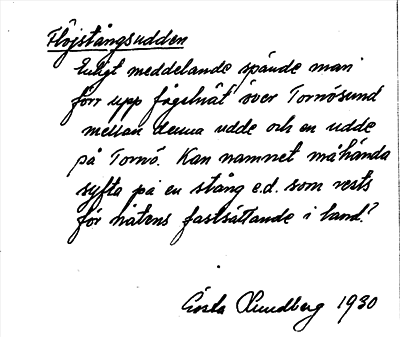 Flöjstångsudden
Enligt meddelande spände man
förr upp fågelnät över Tornösund
mellan denna udde och en udde
på Tornö. Kan namnet måhända
syfta på en stång e.d. som rests
för nätens fastsättande i land?
Gösta Lundberg 1930